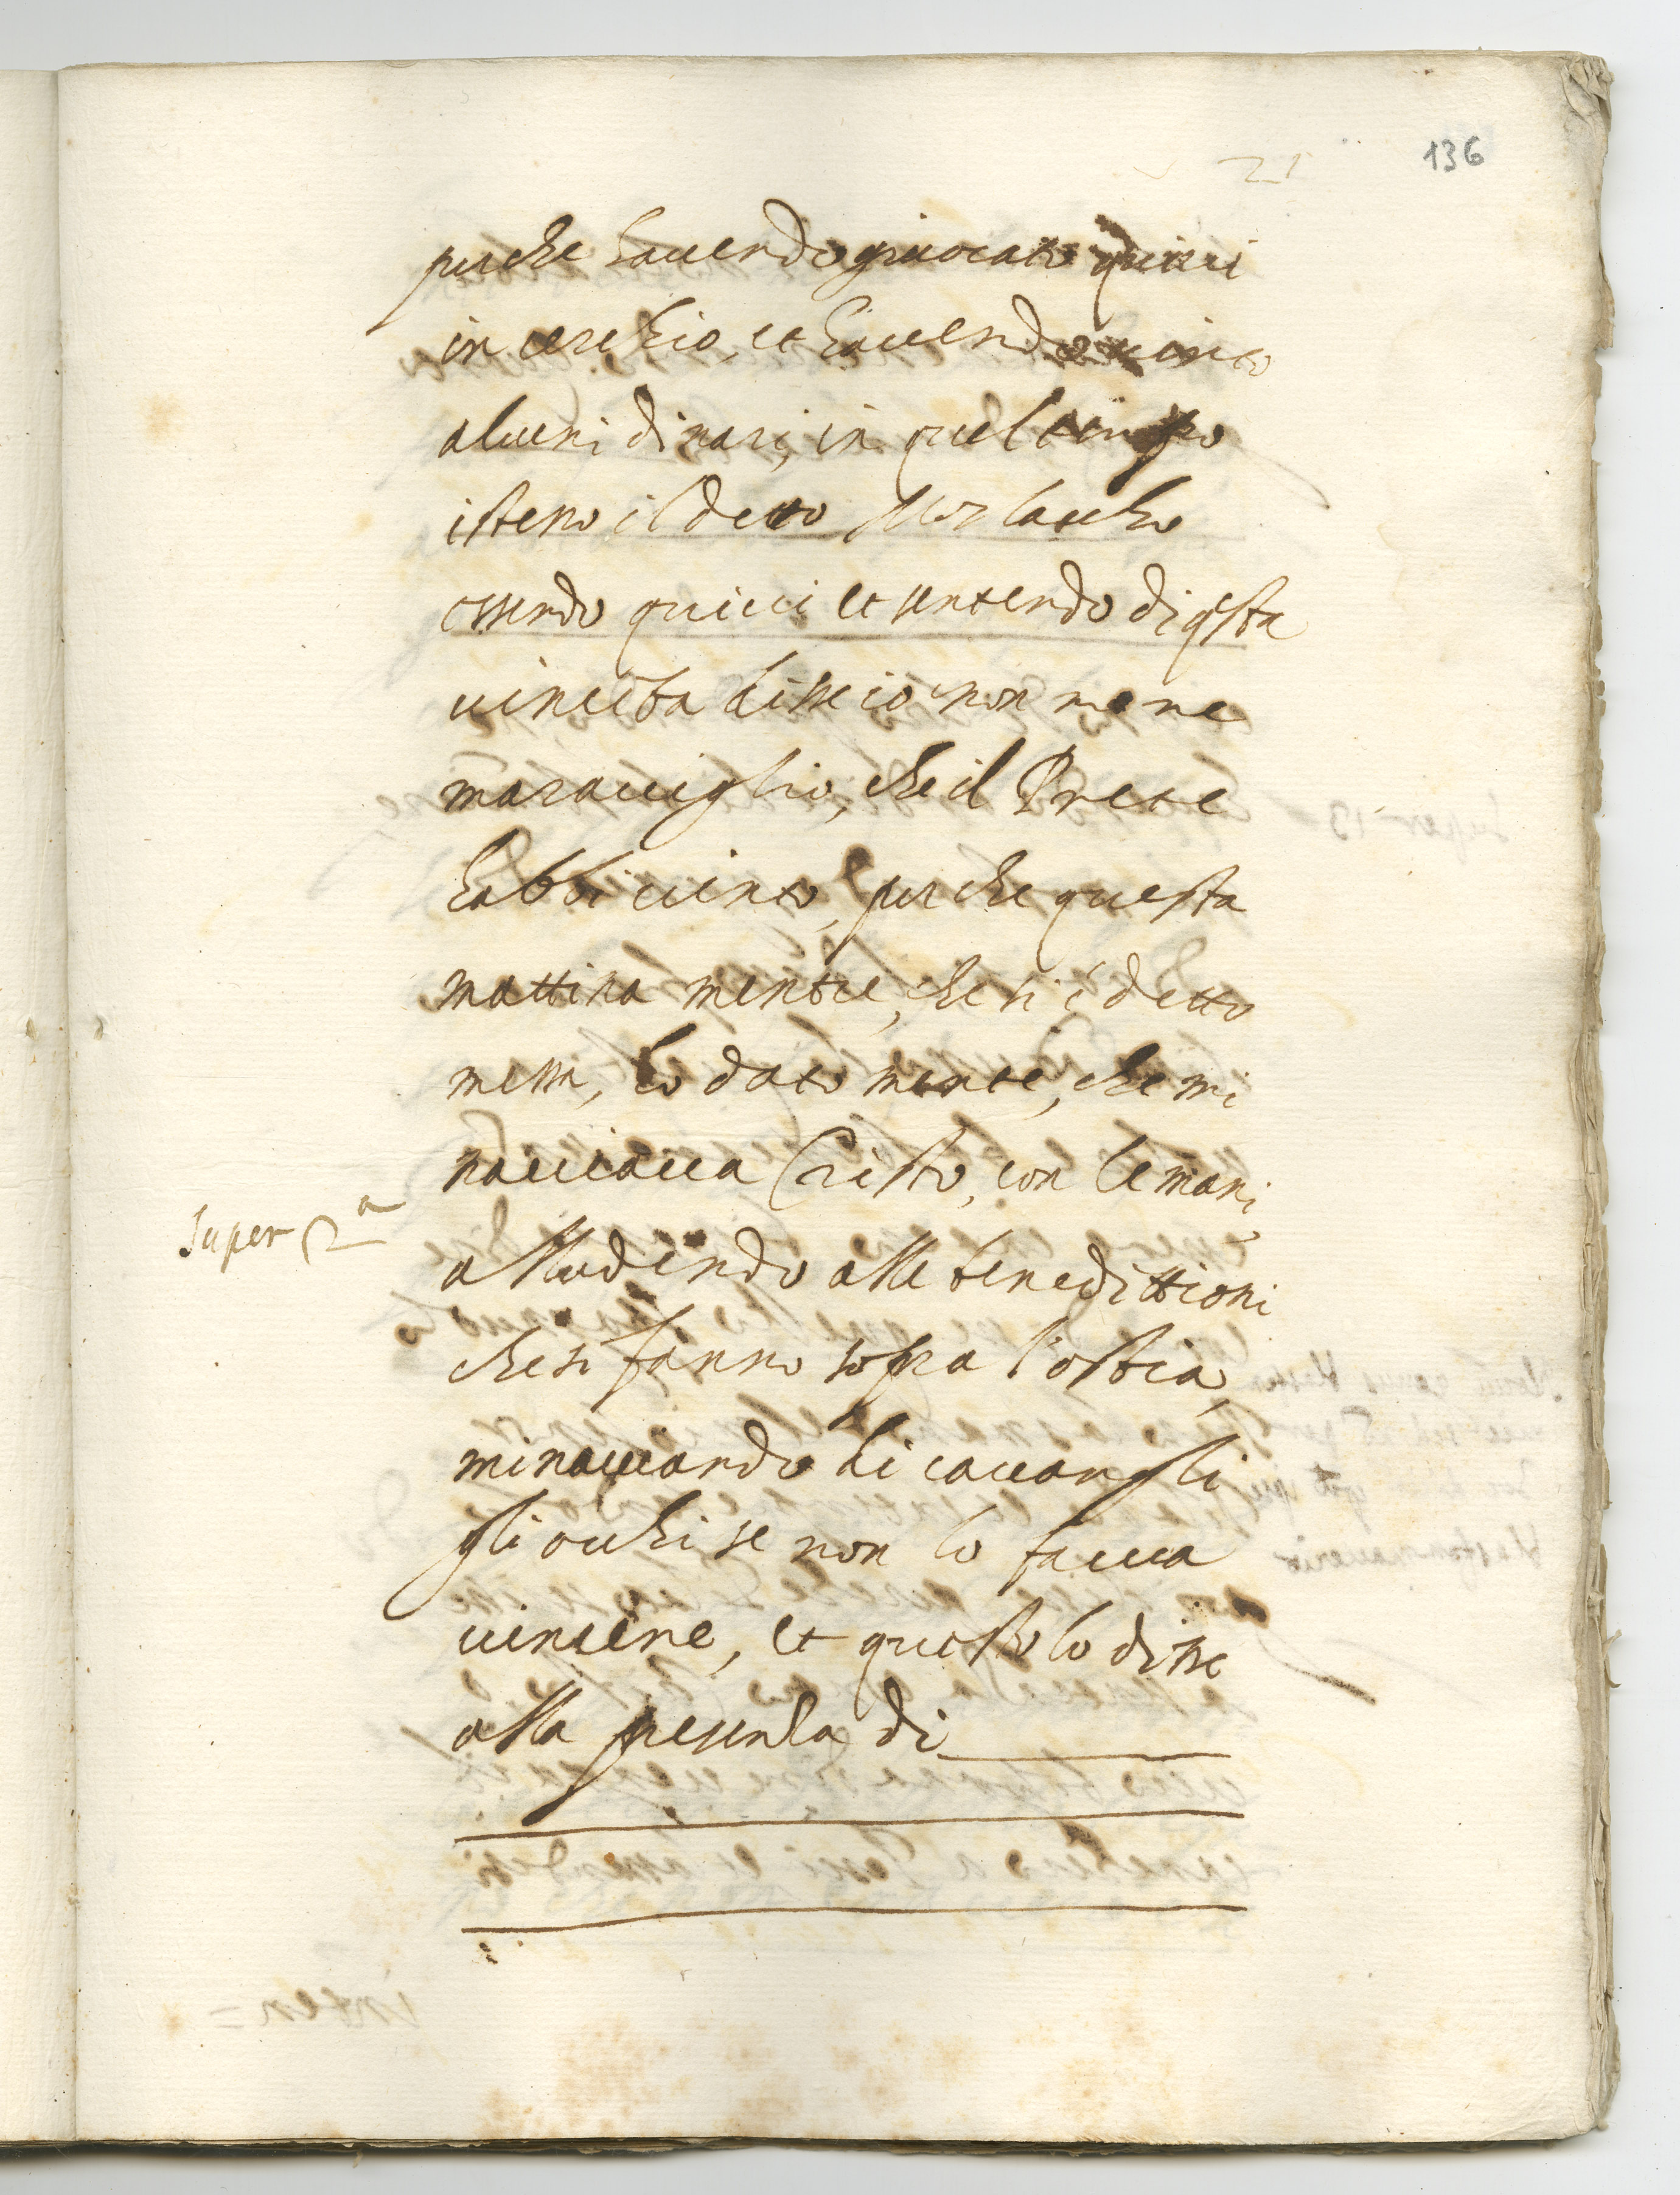 21
136
perche havendo giuocato quivi
in cerchio, et havendo vinto
alcuni dinari, in quel tempo
istesso il detto Morlaccho
essendo quivi et sentendo di qsta
vincita disse io non me ne
maraviglio, che il Prete
habbi vinto, perche questa
mattina mentre, che si è detto
messa, ho dato mente, che mi
nacciava Cristo, con le mani,
alludendo alle bendittioni
che si fanno sopra l'ostia,
minacciando di cavargli
gli occhi se non lo faceva
vincere, et questo lo disse
alla presenza di
Super 2a